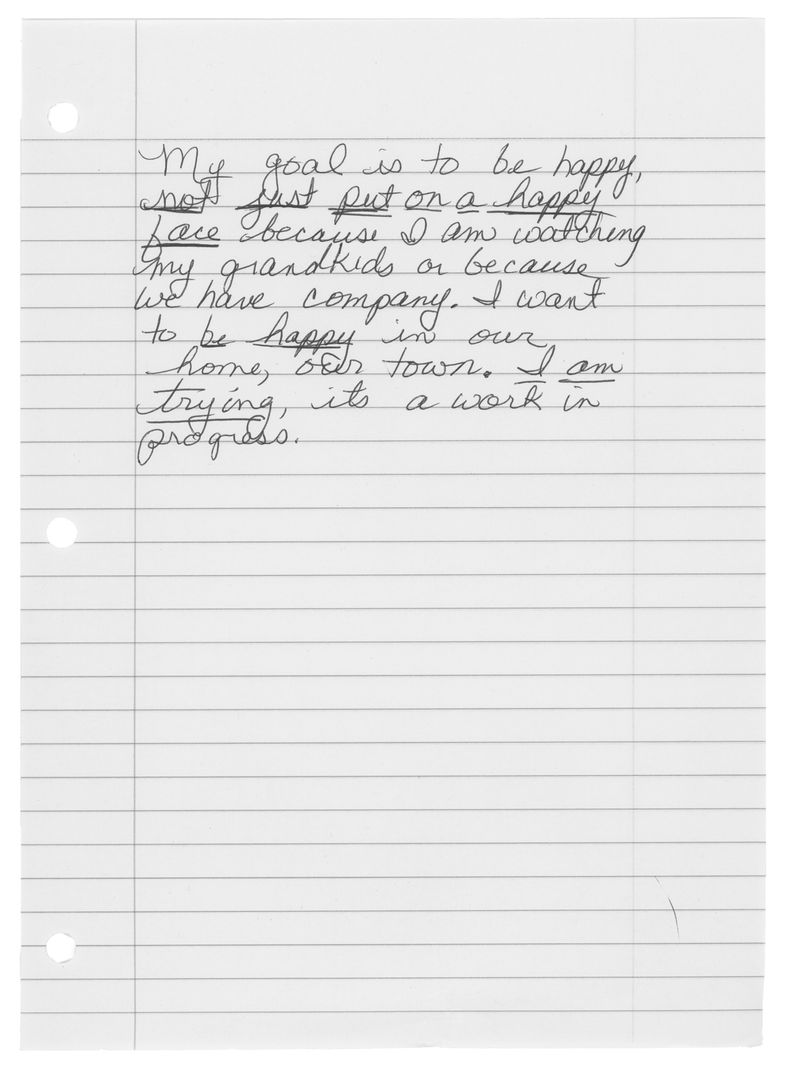 My goal is to be happy,
not just put on a happy
face because I am watching
my grandkids or because
we have company. I want
to be happy in our
home, our town. I am
trying, its a work in
progress.